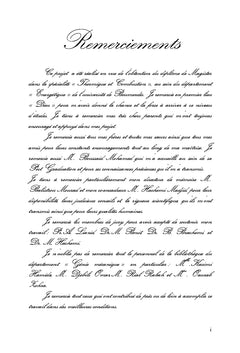 Remerciements
Ce projet a été réalisé en vue de l'obtention du diplôme de Magister
dans la spécialité « Thermique et Combustion », au sein du département
« Energétique » de l'université de Boumerdès. Je remercie en premier lieu
« Dieu » pour m'avoir donné la chance et la force à arriver à ce niveau
d'étude. Je tiens à remercier mes très chers parents qui m'ont toujours
encouragé et appuyé dans mes projet.
Je remercie aussi tous mes frères et toutes mes sœurs ainsi que tous mes
amis pour leurs constants encouragements tout au long de ma maitrise. Je
remercie aussi M. Mohamed qui m'a accueilli au sein de sa
Post Graduation et pour sa connaissance précieuse qu'il m'a transmis.
Je tiens à remercier particulièrement mon directeur de mémoire M.
Balistrou Mourad et mon co M. Hachemi Madjid pour leur
disponibilité leurs judicieux conseils et la rigueur scientifique qu'ils m'ont
transmis ainsi que pour leurs qualités humaines.
Je remercie les membres de jury pour avoir accepté de soutenir mon
travail : Dr. M. Dr. B. Dr. M. Hachemi.
Je n'oublie pas de remercier tout le personnel de la bibliothèque du
département « Génie mécanique » en particulier : M
Hamida, M. Omar M. Rabah et M
Je remercie tout ceux qui ont contribué de près ou de loin à accomplir ce
travail dans des meilleures conditions.
i